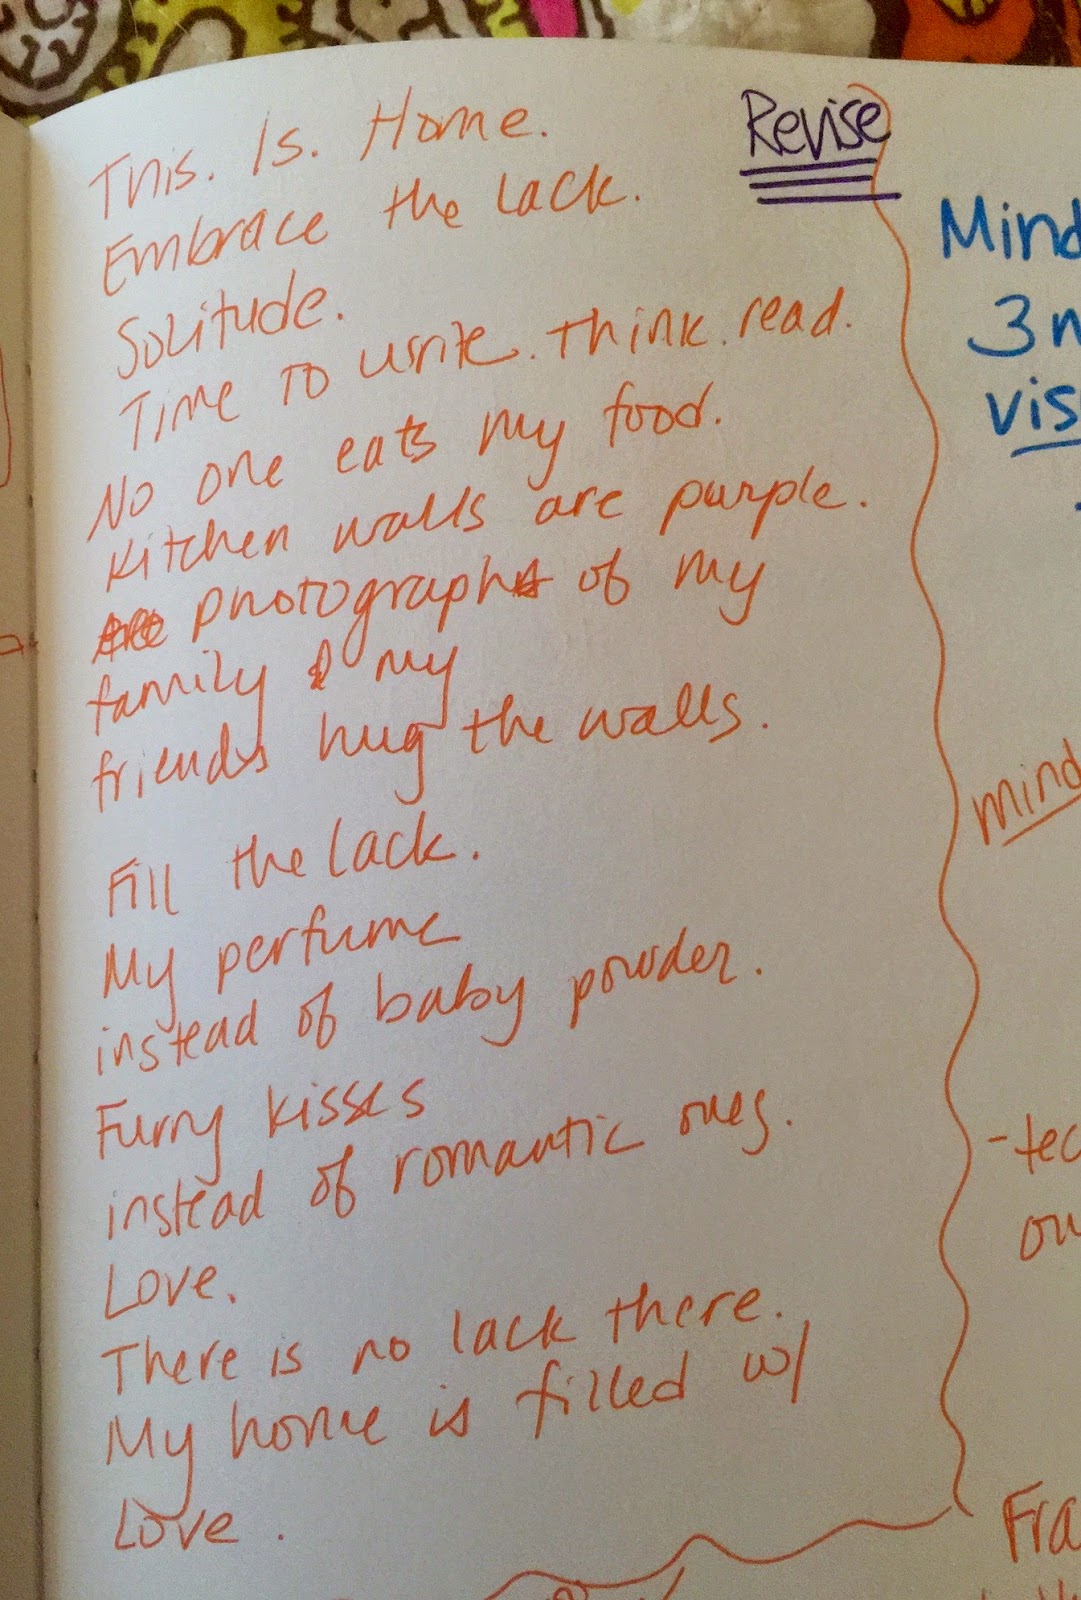 This. Is. Home.
Revise
Embrace the lack.
Solitude.
Time to write. Think. read.
No one eats my food.
Kitchen walls are purple.
photographs of my
family & my
friends hug the walls.
Fill the lack.
My perfume
instead of baby powder.
Furry kisses
instead of romantic ones.
Love.
There is no lack there.
My home is filled w/
Love.
Mind
3
vis
mind
-tec
ou
Fra